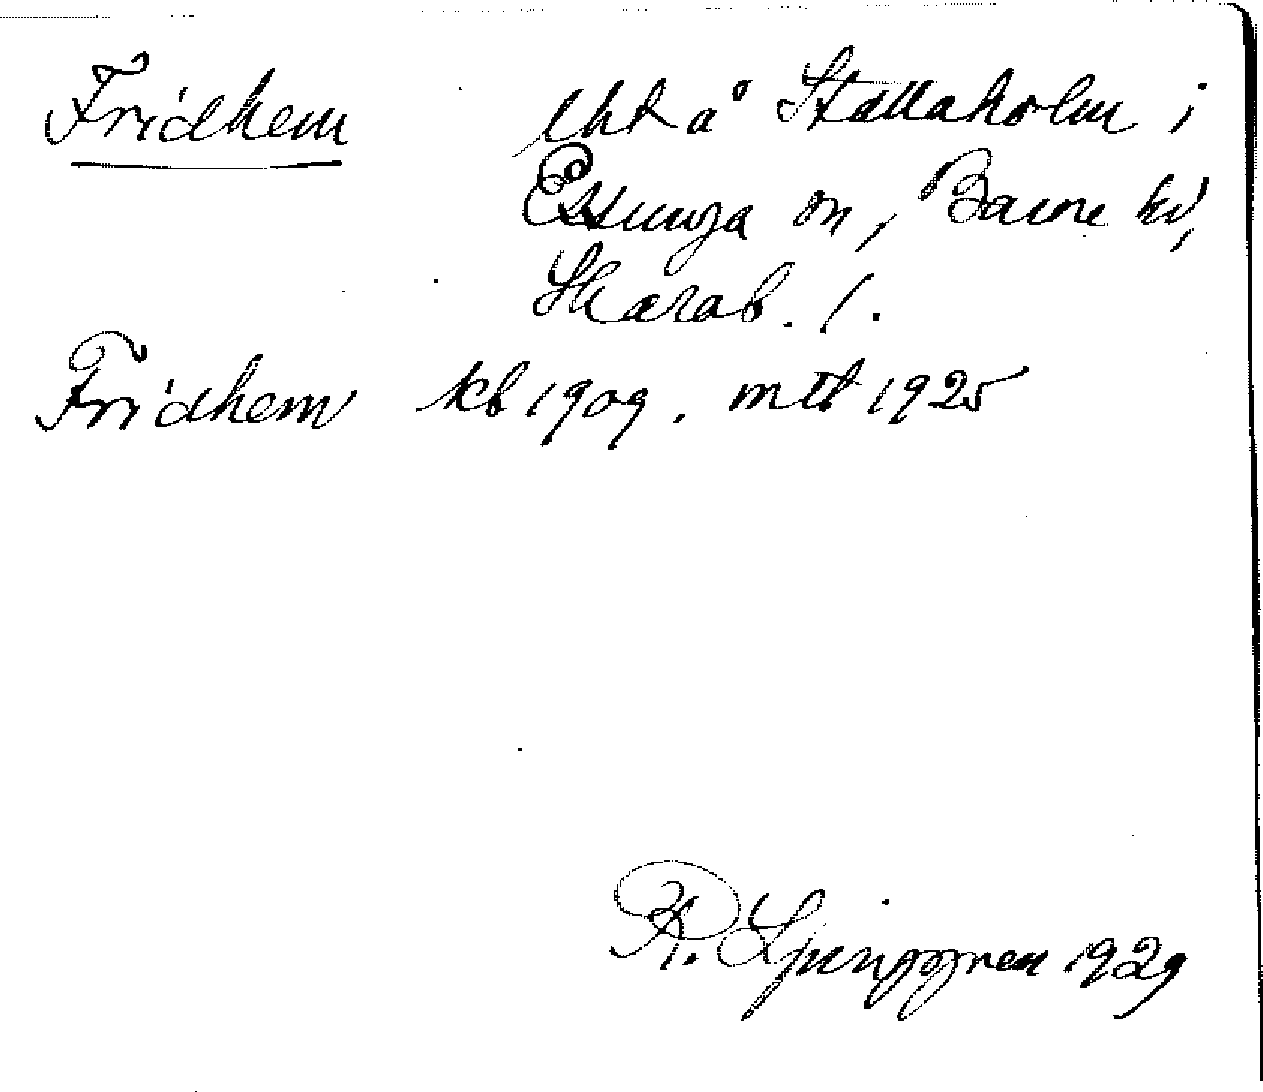 Fridhem lht å Stallaholm i
Essunga sn, Barne hd,
Skarab. l.
Fridhem kb 1909. mtb 1925
R. Ljunggren 1929